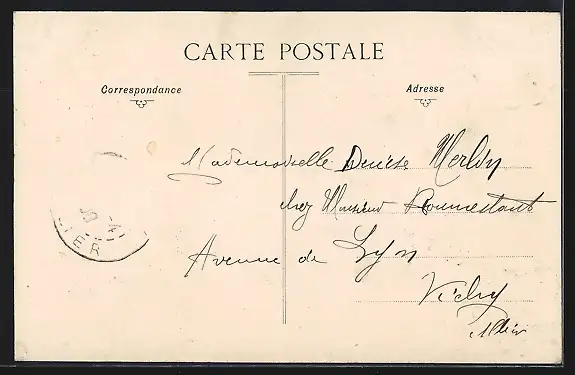 CARTE POSTALE
Correspondance
Adresse
Mademoiselle Denise Merlin
chez Monsieur Roumestant
Avenue de Lyon
Vichy
Allier
LIER